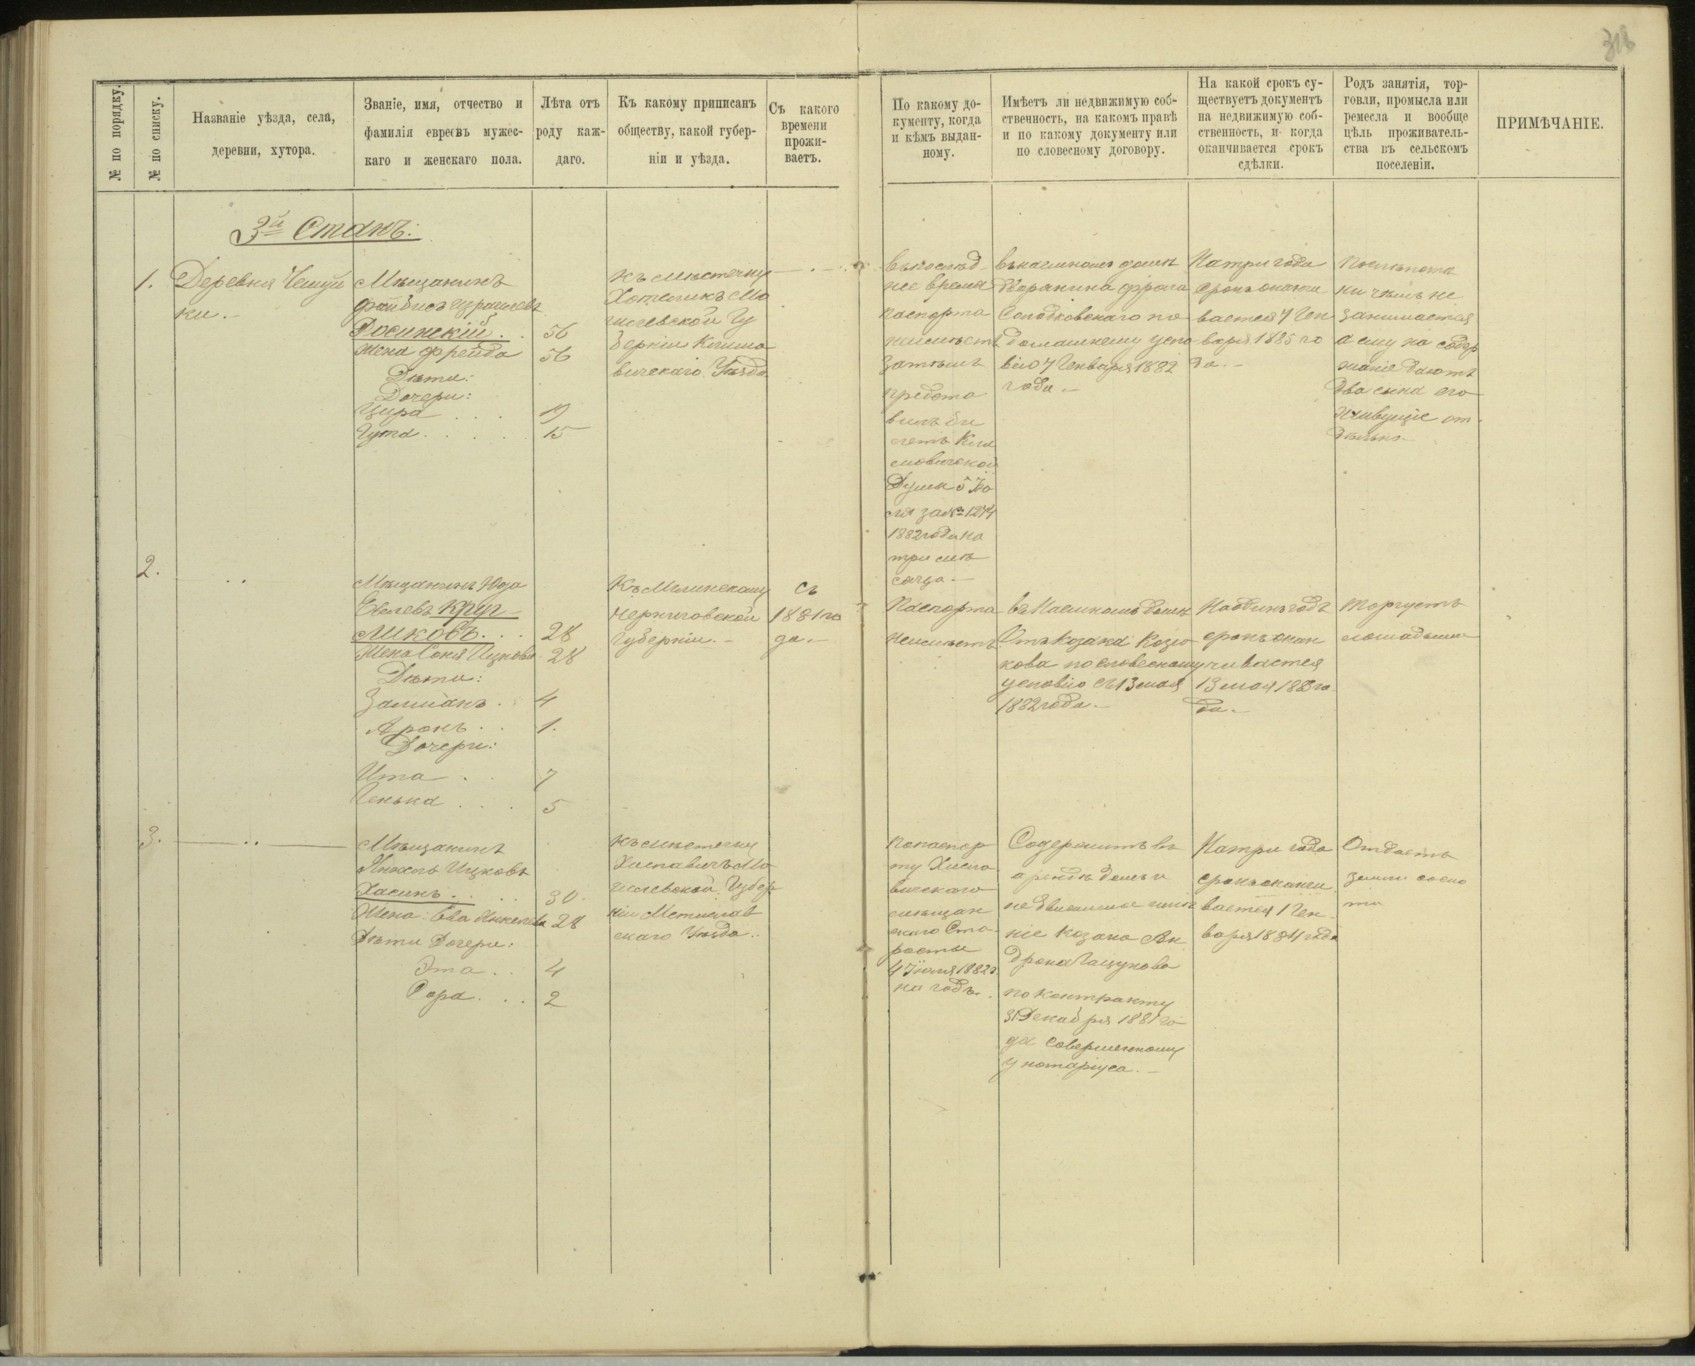 318
№ по порядку.
№ по списку.
Названіе уѣзда, села,
деревни, хутора.
Званіе, имя, отчество и
фамилія евреевъ мужес-
каго и женскаго пола.
Лѣта отъ
роду каж-
даго.
Къ какому приписанъ
обществу, какой губер-
ніи и уѣзда.
Съ какого
времени
прожи-
ваетъ.
По какому до-
кументу, когда
и кѣмъ выдан-
ному.
Имѣетъ ли недвижимую соб-
ственность, на какомъ правѣ
и по какому документу или
по словесному договору.
На какой срокъ су-
ществуетъ документъ
на недвижимую соб-
ственность, и когда
оканчивается срокъ
сдѣлки.
Родъ занятія, тор-
говли, промысла или
ремесла и вообще
цѣль проживатель-
ства въ сельскомъ
поселеніи.
ПРИМѢЧАНІЕ.
3й Станъ:
1.
Деревня Чешуй
ки.-
Мѣщанинъ
Файбисъ Израилевъ
Росинскій
Жена Фрейда
Дѣти:
Дочери:
Цира
Гута
56
56
19
15
Къ мѣстечку
Хотемкъ Мо
гилевской Гу
берніи Клима
вичскаго Уѣзда
Въ послѣд-
нее время
паспорта
неимѣетъ
затѣмъ
предста
вилъ би
летъ Кли
мовичской
Думы 5 Iю
ля за № 1274
1882 года на
три мѣ
сяца.-
въ наемномъ домѣ
Дворянина Фрола
Солодковскаго по
домашнему усло
вію 7 Генваря 1882
года.-
На три года
срокъ оканчи
вается 7 Ген
варя 1885 го
да.-
По слѣпотѣ
ни чѣмъ не
занимается
а ему на содер
жаніе даютъ
два сына его
живущіе от
дѣльно.
2.
Мѣщанинъ Юда
Евелевъ Круг-
ликовъ.
Жена Соня Ицкова
Дѣти:
Залманъ.
Аронъ.
Дочери:
Ита
Генька
28
28
4
1.
7
5
Къ Мглинскому
Черниговской
Губерніи.-
съ
1881 го
да.-
Паспорта
неимѣетъ
въ наемномъ домѣ
отъ козака Козло
кова по словесному
условію съ 13 мая
1882 года.-
На одинъ годъ
срокъ окан
чивается
13 мая 1883 го
да.-
Торгуетъ
лошадьми
3.
Мѣщанинъ
Янкель Ицковъ
Хасинъ.
Жена: Ева Янкелева
Дѣти Дочери:
Эта
Сора
30.
28
4
2
Къ мѣстечку
Хиславичъ Мо
гилевской Губер
ніи Мстислав
скаго Уѣзда.
По паспор
ту Хисла
вичскаго
мѣщан
скаго Ста
росты
4 Iюня 1882 г.
на годъ.
Содержитъ въ
арендѣ домъ и
недвижимое имѣ
ніе козака Ан
дрона Гацукова
по контракту
31 Декабря 1881 го
да совершенному
у нотаріуса.-
На три года
срокъ оканчи
вается 1 Ген-
варя 1884 года
Отдаетъ
земли спо
ти